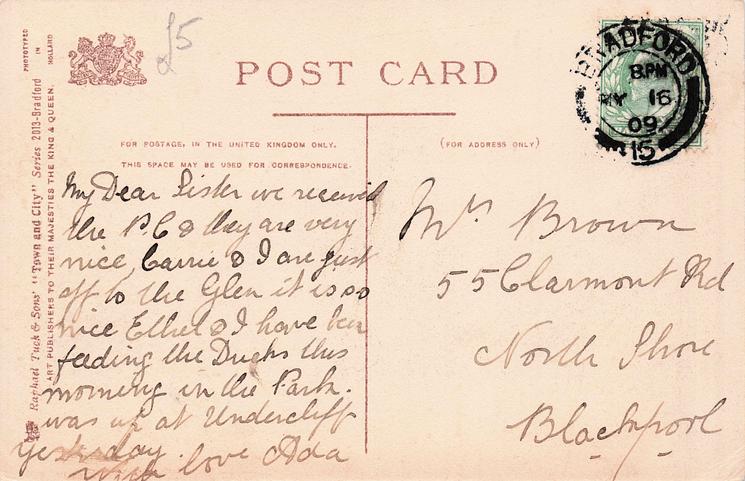 £5
POST CARD
FOR POSTAGE, IN THE UNITED KINGDOM ONLY.
THIS SPACE MAY BE USED FOR CORRESPONDENCE.
(FOR ADDRESS ONLY)
PHOTOTYPED
IN
HOLLAND
Raphael Tuck & Sons' "Town and City" Series 2013-Bradford
ART PUBLISHERS TO THEIR MAJESTIES THE KING & QUEEN.
BRADFORD
8PM
MY 16
09
15
My Dear Sister we received
the P.C & they are very
nice, Carrie & I are just
off to the Glen it is so
nice Ethel & I have been
feeding the Ducks this
morning in the Park.
was up at Undercliff
yesterday.
with love Ada
Mrs Brown
55 Clarmont Rd
North Shore
Blackpool